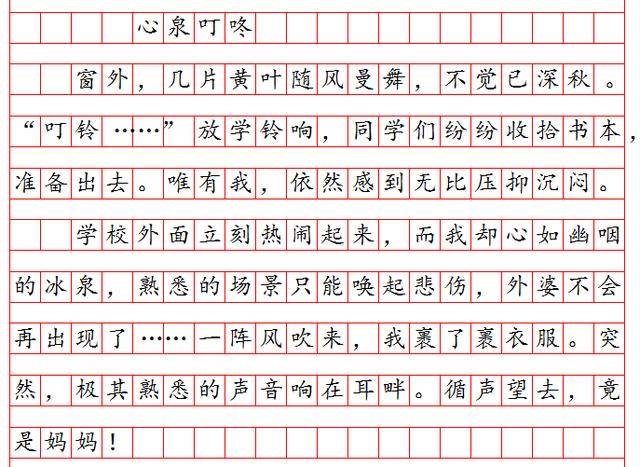 心泉叮咚
窗外，几片黄叶随风曼舞，不觉已深秋。
“叮铃……”放学铃响，同学们纷纷收拾书本，
准备出去。唯有我，依然感到无比压抑沉闷。
学校外面立刻热闹起来，而我却心如幽咽
的冰泉，熟悉的场景只能唤起悲伤，外婆不会
再出现了……一阵风吹来，我裹了裹衣服。突
然，极其熟悉的声音响在耳畔。循声望去，竟
是妈妈！